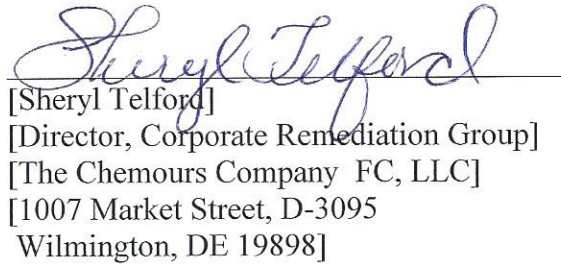 Sheryl Telford
[Sheryl Telford]
[Director, Corporate Remediation Group]
[The Chemours Company  FC, LLC]
[1007 Market Street, D-3095
Wilmington, DE 19898]